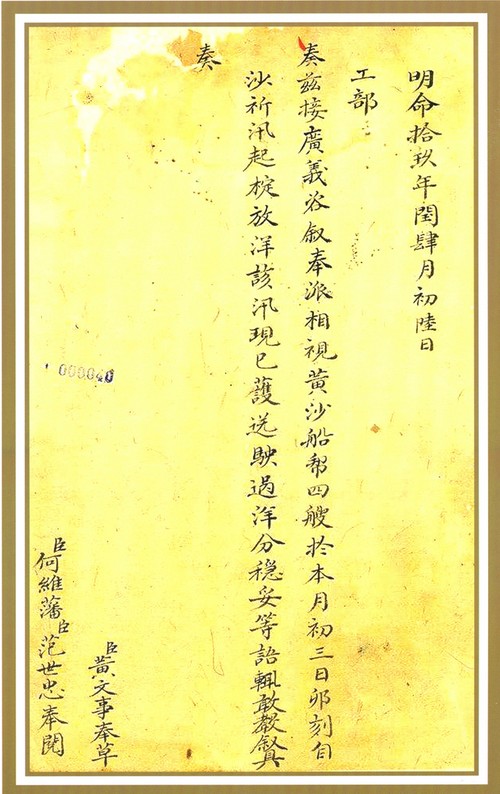 明命拾玖年閏肆月初陸日
工部
奏茲接廣義咨叙奉派相視黄沙船帮四艘於本月初三日卯刻自
沙祈汛起椗放洋該汛現已護送駛過洋分穏妥等語輒敢敷叙具
奏
臣黄文事奉草
臣何維藩臣范世忠奉閲
000040